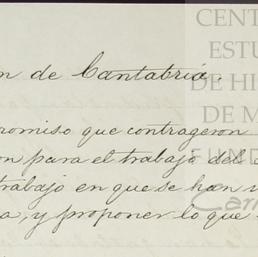 n de Cantabria.
romiso que contrageron
on para el trabajo del
trabajo en que se han
a, y proponer lo que
CENT
ESTU
DE HI
DE M
FUND
Car